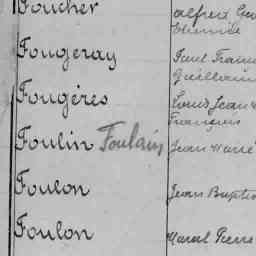 Foucher Alfred
Fougeray Paul
Fougères Louis Jean
François
Foulin Foulain Jean Marie
Foulon Jean Baptis
Foulon Marcel Pierre